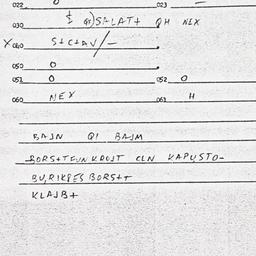 022 0 023 —
030 QI) SALAT+ QH NIX
X 040 S+C+AV/—
050 0
051 0 052 0
060 NEY 061 H
BAJN QI BAJM
BORS++EJN KROJT CLN KAPUSTO-
BURIKBES BORS++
KLAJB+